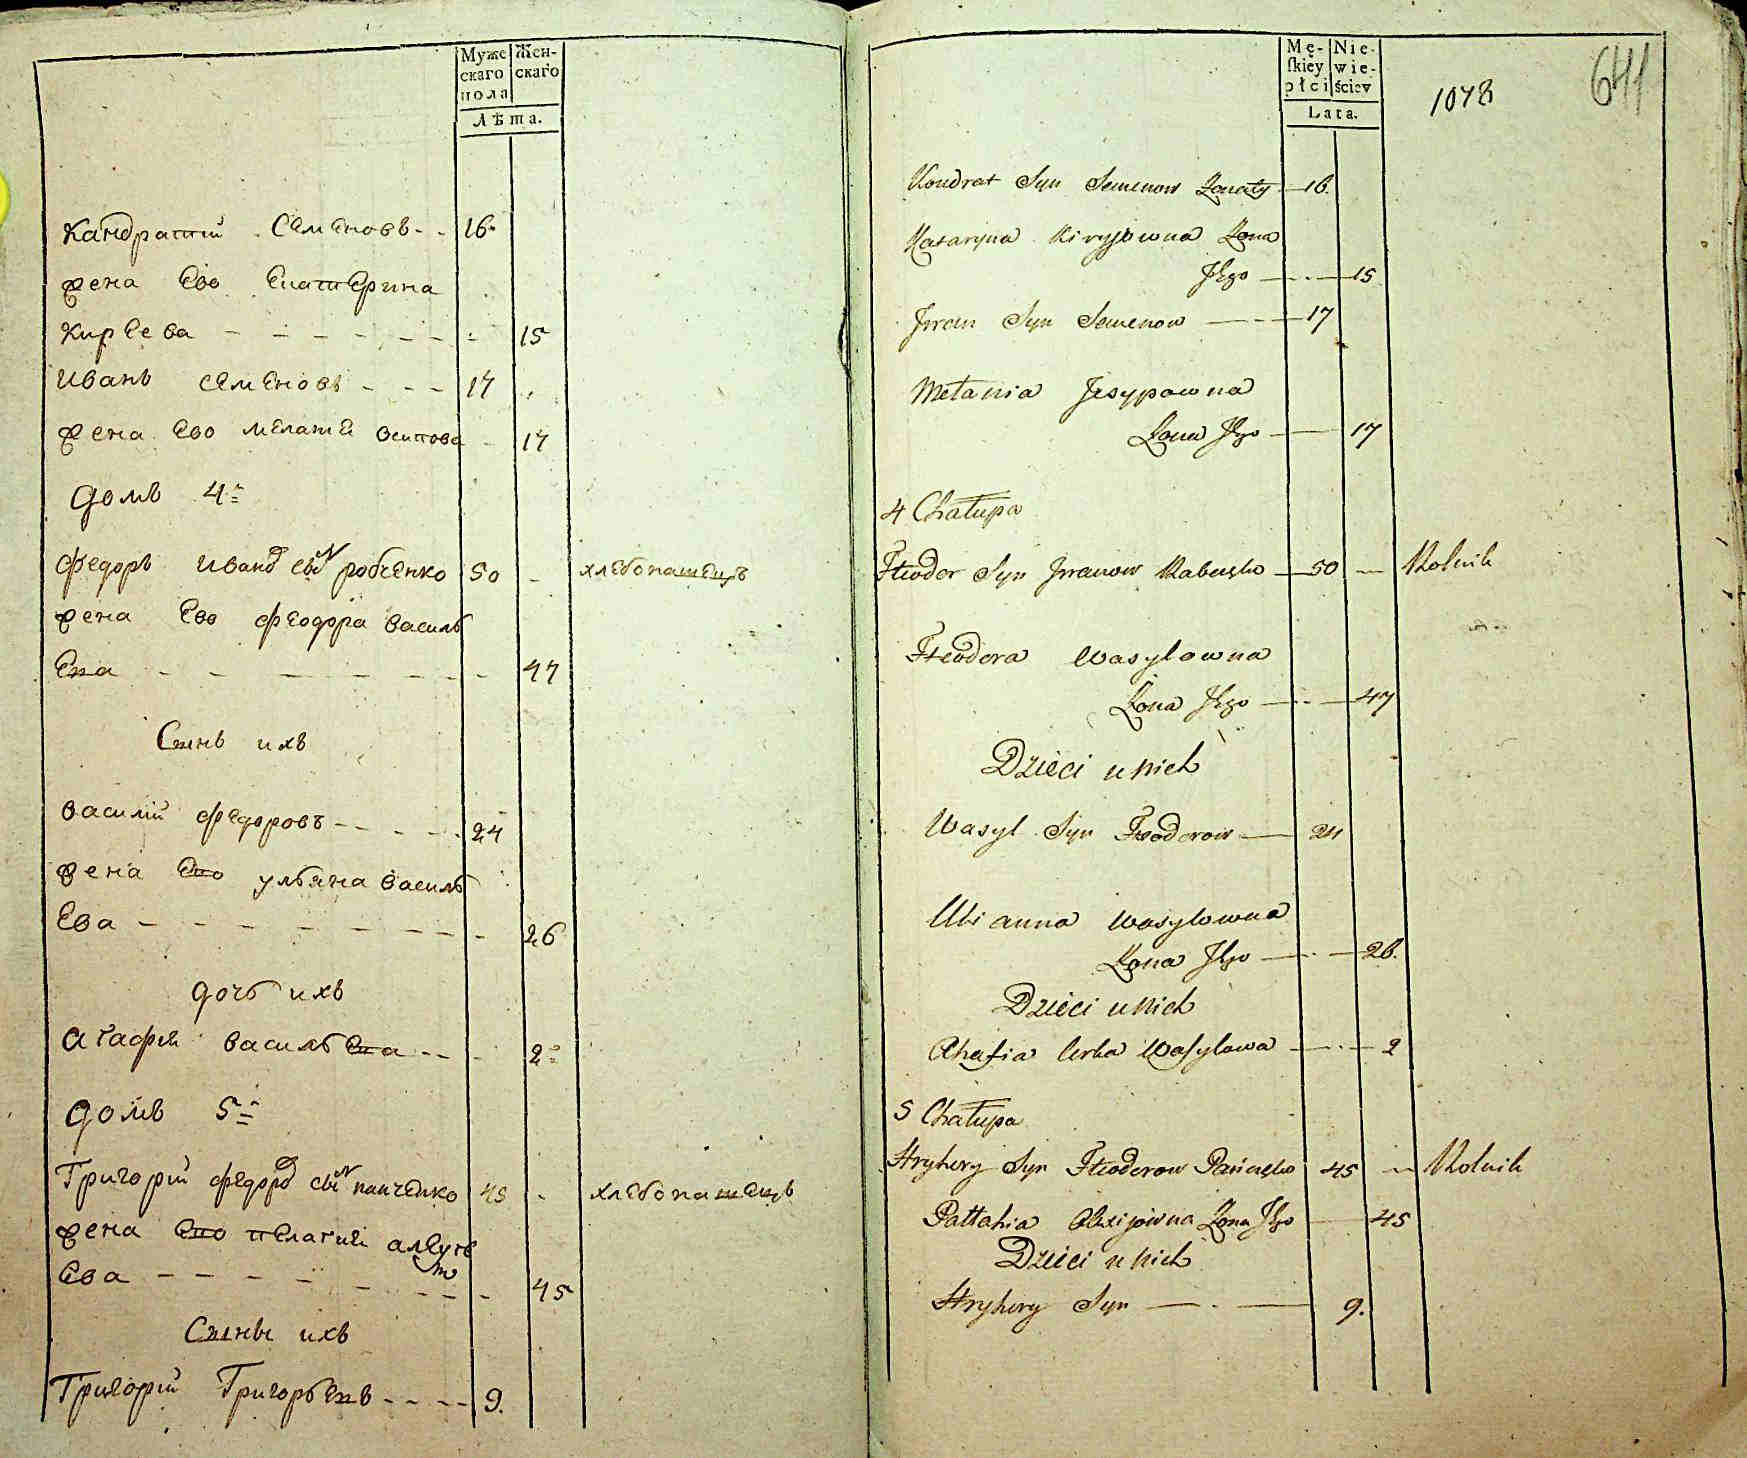 Муже скаго пола
Жен- скаго
Лѣта.
Кандратий Семеновъ - - 16
жена Ево Екатерина
Кирѣева - - - - - - 15
Иванъ Семеновъ - - - 17
жена Ево Мелатея Осипова - 17
Домъ 4й
Федоръ Иванов сын робченко 50 - хлебопашецъ
жена Ево Феодора Василь
Ева - - - - - - - 47
Сынъ ихъ
Василий Федоровъ - - - - 24
жена Ево Ульяна Василь
Ева - - - - - - - - 26
Дочь ихъ
Агафия Васильева - - - 2
Домъ 5й
Григорий Федоров сын панченко 45 - хлебопашецъ
жена Ево пелагия алексе
Ева - - - - - - - 45
Сыны ихъ
Григорий Григорьевъ - - - - 9.
Mę- skiey płci
Nie- wie- ściey
Lata.
1078
641
Kondrat Syn Semenow Żonaty 16
Kataryna Kiryjowna Żona
Jego — 15
Jwan Syn Semenow — 17
Melania Jesypowna
Żona Jego — 17
4 Chałupa
Fteodor Syn Jwanow Rabczęko — 50 — Rolnik
Fteodora Wasylowna
Żona Jego — 47
Dzieci u Nich
Wasyl Syn Fteodorow — 24
Ulianna Wasylowna
Żona Jego — 26.
Dzieci u Nich
Ahafia Corka Wasylowa — 2
5 Chałupa
Hryhory Syn Fteodorow Pańczęko 45 — Rolnik
Pałłahia Olexijowna Żona Jego — 45
Dzieci u Nich
Hryhory Syn — 9.